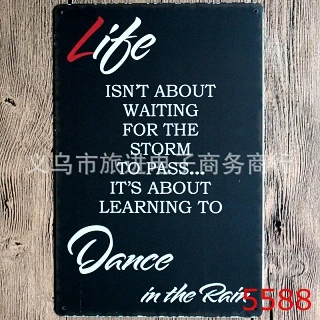 Life
ISN'T ABOUT
WAITING
FOR THE
STORM
TO PASS...
IT'S ABOUT
LEARNING TO
Dance
in the Rain
5588